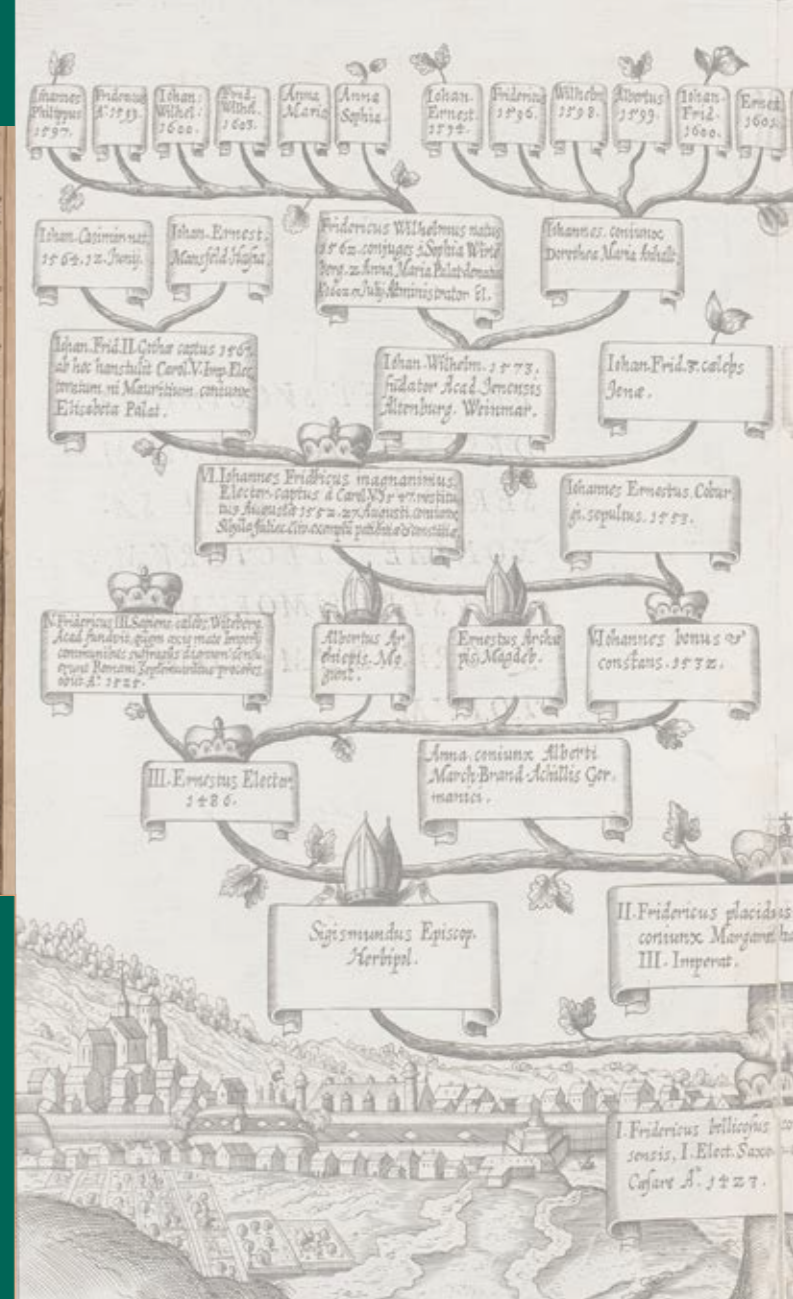 Iohannes
Philippus
1597.
Fridericus
Aº. 1599.
Iohan:
Wilhel:
1600.
Frid.
Wilhel.
1603.
Anna
Maria
Anna
Sophia.
Iohan.
Ernest.
1594.
Fridericus
1596.
Wilhelm
1598.
Albertus
1599.
Iohan.
Frid.
1600.
Ernest
1601.
Iohan. Casimir nat.
1564. 12. Junij.
Iohan. Ernest.
Mansfeld
Fridericus Wilhelmus natus
1562. conjuges 1. Sophia
2. Anna Maria Palat.
Julij Administrator El.
Iohannes. coniunx
Dorothea Maria Anhalt.
Iohan. Frid. II. Gothæ captus 1567.
ab hoc transtulit Carol. V. Imp. Elec
toratum ni Mauritium coniunx
Elisabeta Palat.
Iohan. Wilhelm. 1573.
fūdator Acad. Jenensis
Altenburg. Weinmar.
Iohan. Frid. 3. cælebs
Jenæ.
VI. Iohannes Fridricus magnanimus.
Elector. captus à Carol. V. 1547. restitu
tus Augustæ 1552. 27. Augusti. coniunx
Sibylla
Iohannes Ernestus Cobur
gi. sepultus. 1553.
Fridericus III. Sapiens. cælebs. Witeberg.
Acad. fundavit, quem
communibus suffragiis
Romani proceres
1525.
Albertus Ar
chiepis. Mo
gunt.
Ernestus Archie
pis. Magdeb.
Iohannes bonus &
constans. 1532.
III. Ernestus Elector.
1486.
Anna. coniunx Alberti
March. Brand. Achillis Ger.
manici.
Sigismundus Episcop.
Herbipol.
II. Fridericus placidus
coniunx Margaretha
III. Imperat.
I. Fridericus bellicosus
sensis, I. Elect. Saxo
Cæsare Aº. 1423.